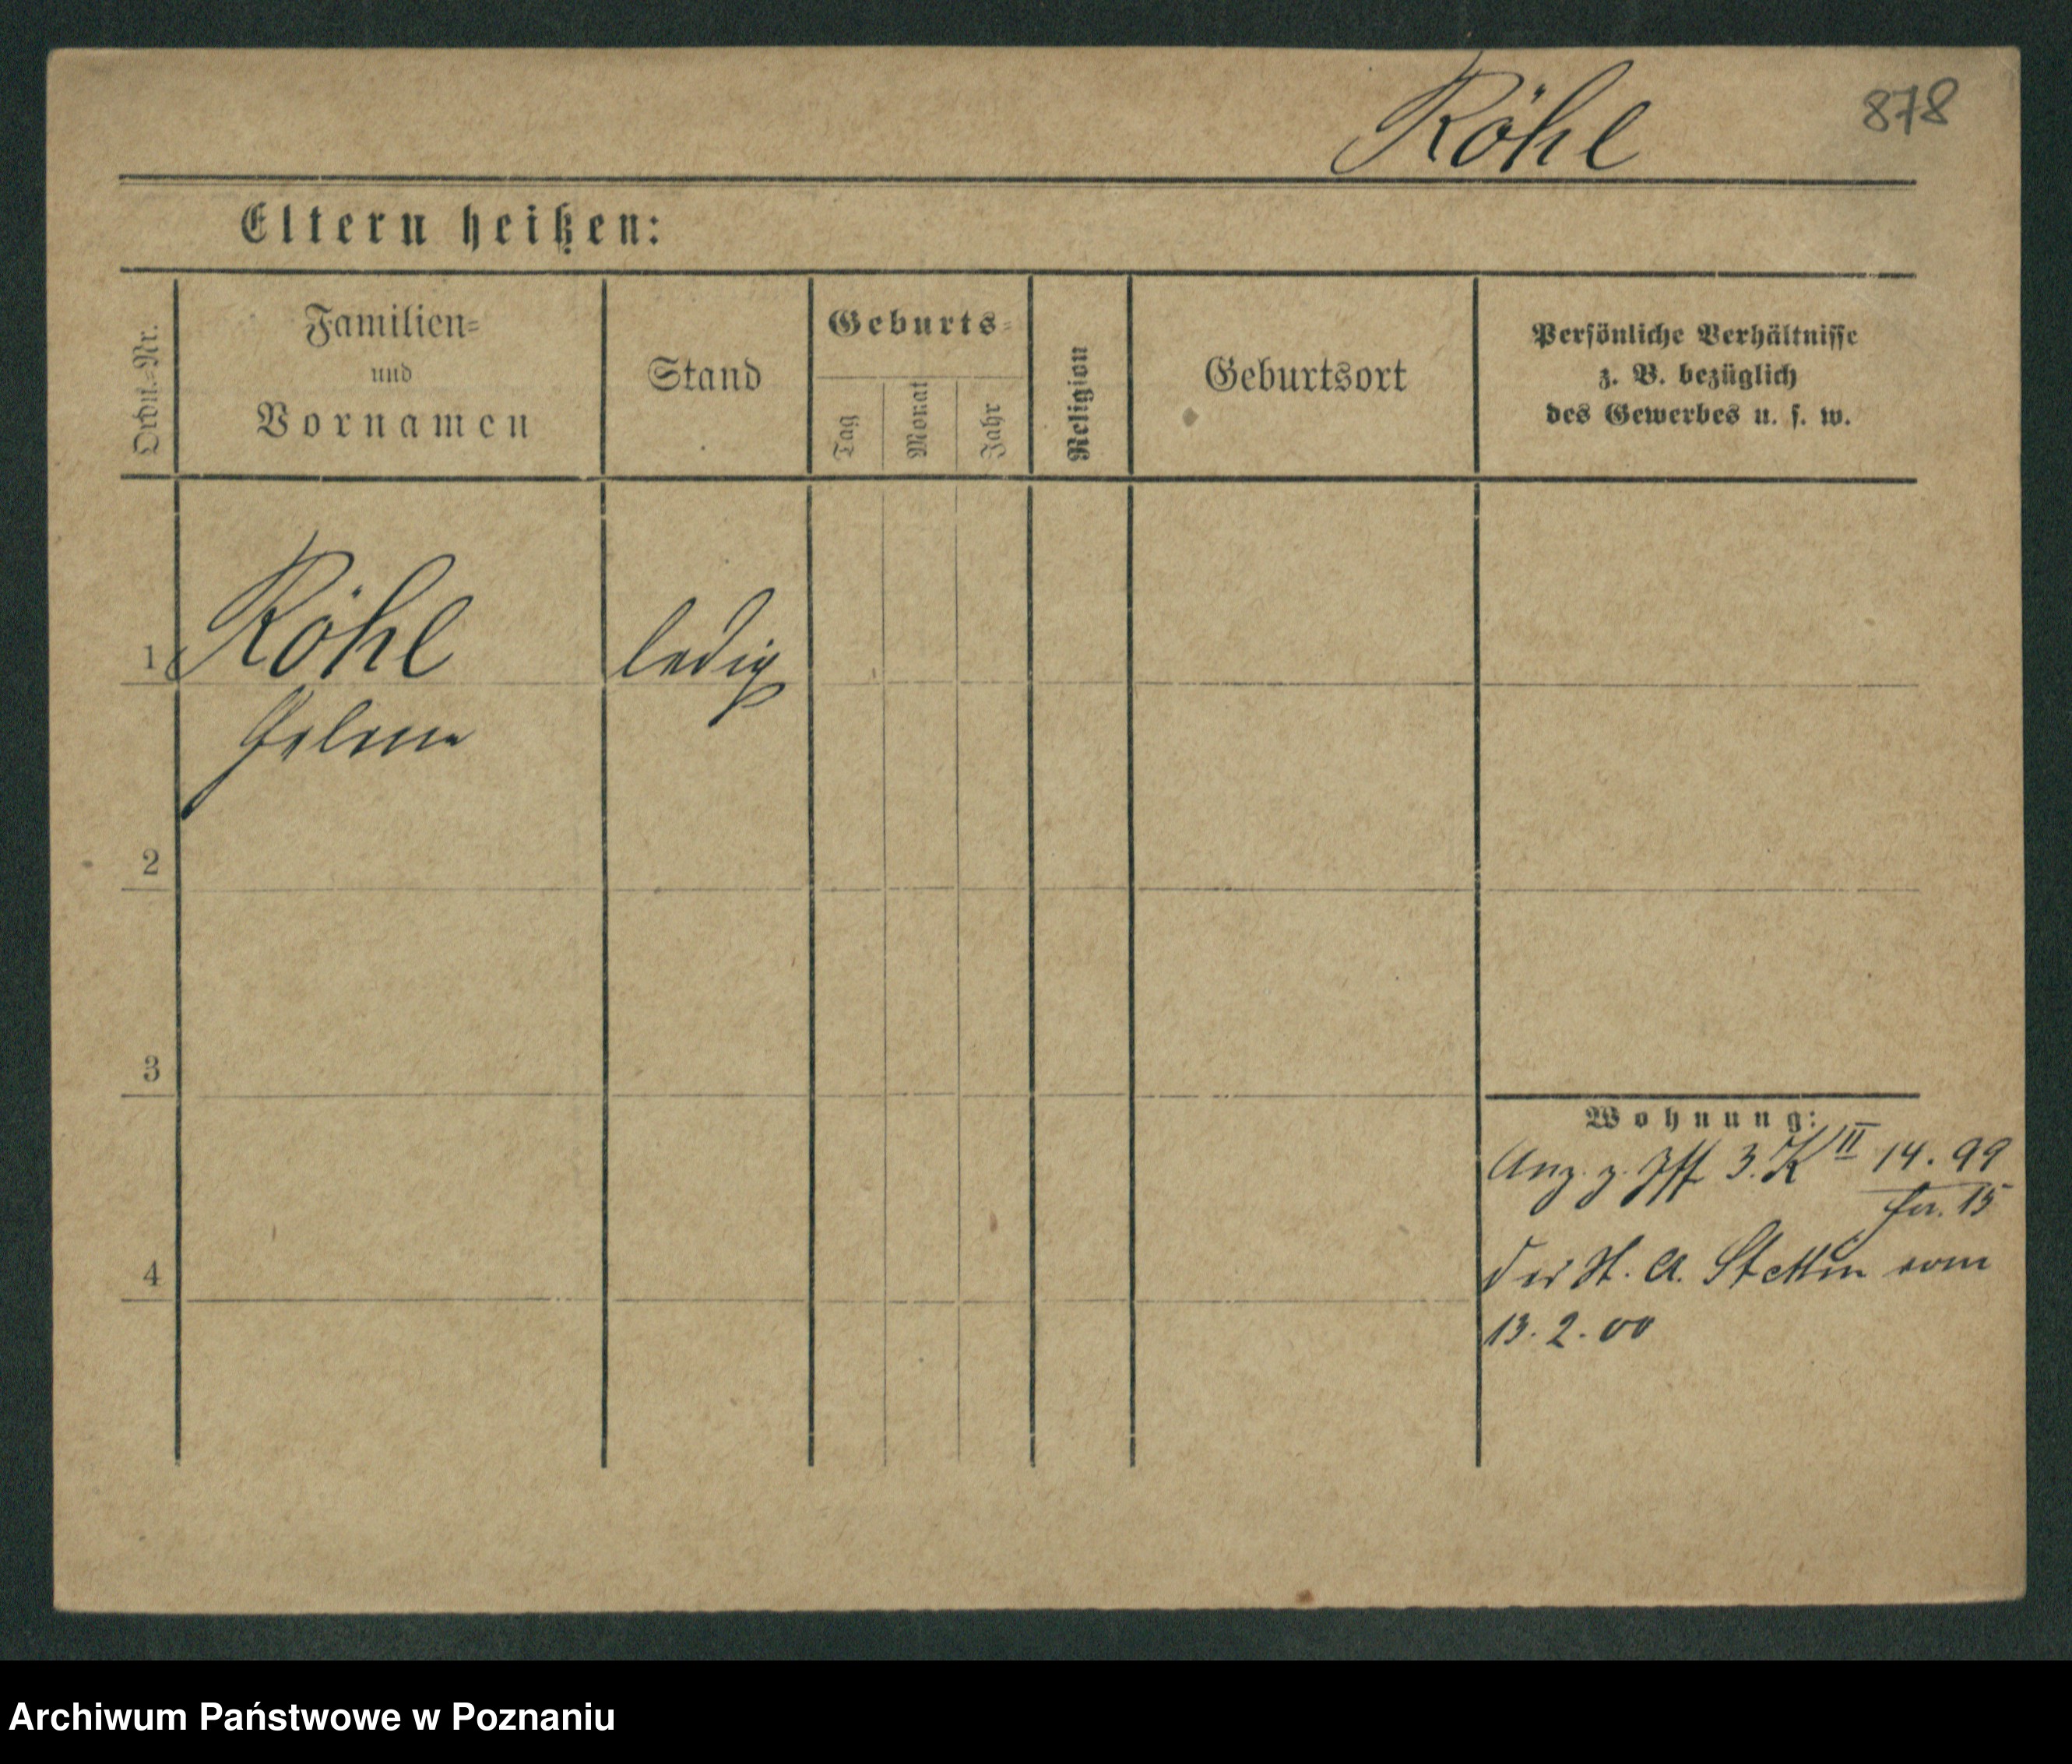 Röhl
878
Eltern heißen:
Ordn.-Nr.
Familien-
und
Vornamen
Stand
Geburts-
Tag
Monat
Jahr
Religion
Geburtsort
Persönliche Verhältnisse
z. B. bezüglich
des Gewerbes u. s. w.
1
Röhl
ledig
Helene
2
3
4
Wohnung:
Anz. z. 3. K II 14. 99
15
der St. A. Stettin vom
13. 2. 00
Archiwum Państwowe w Poznaniu